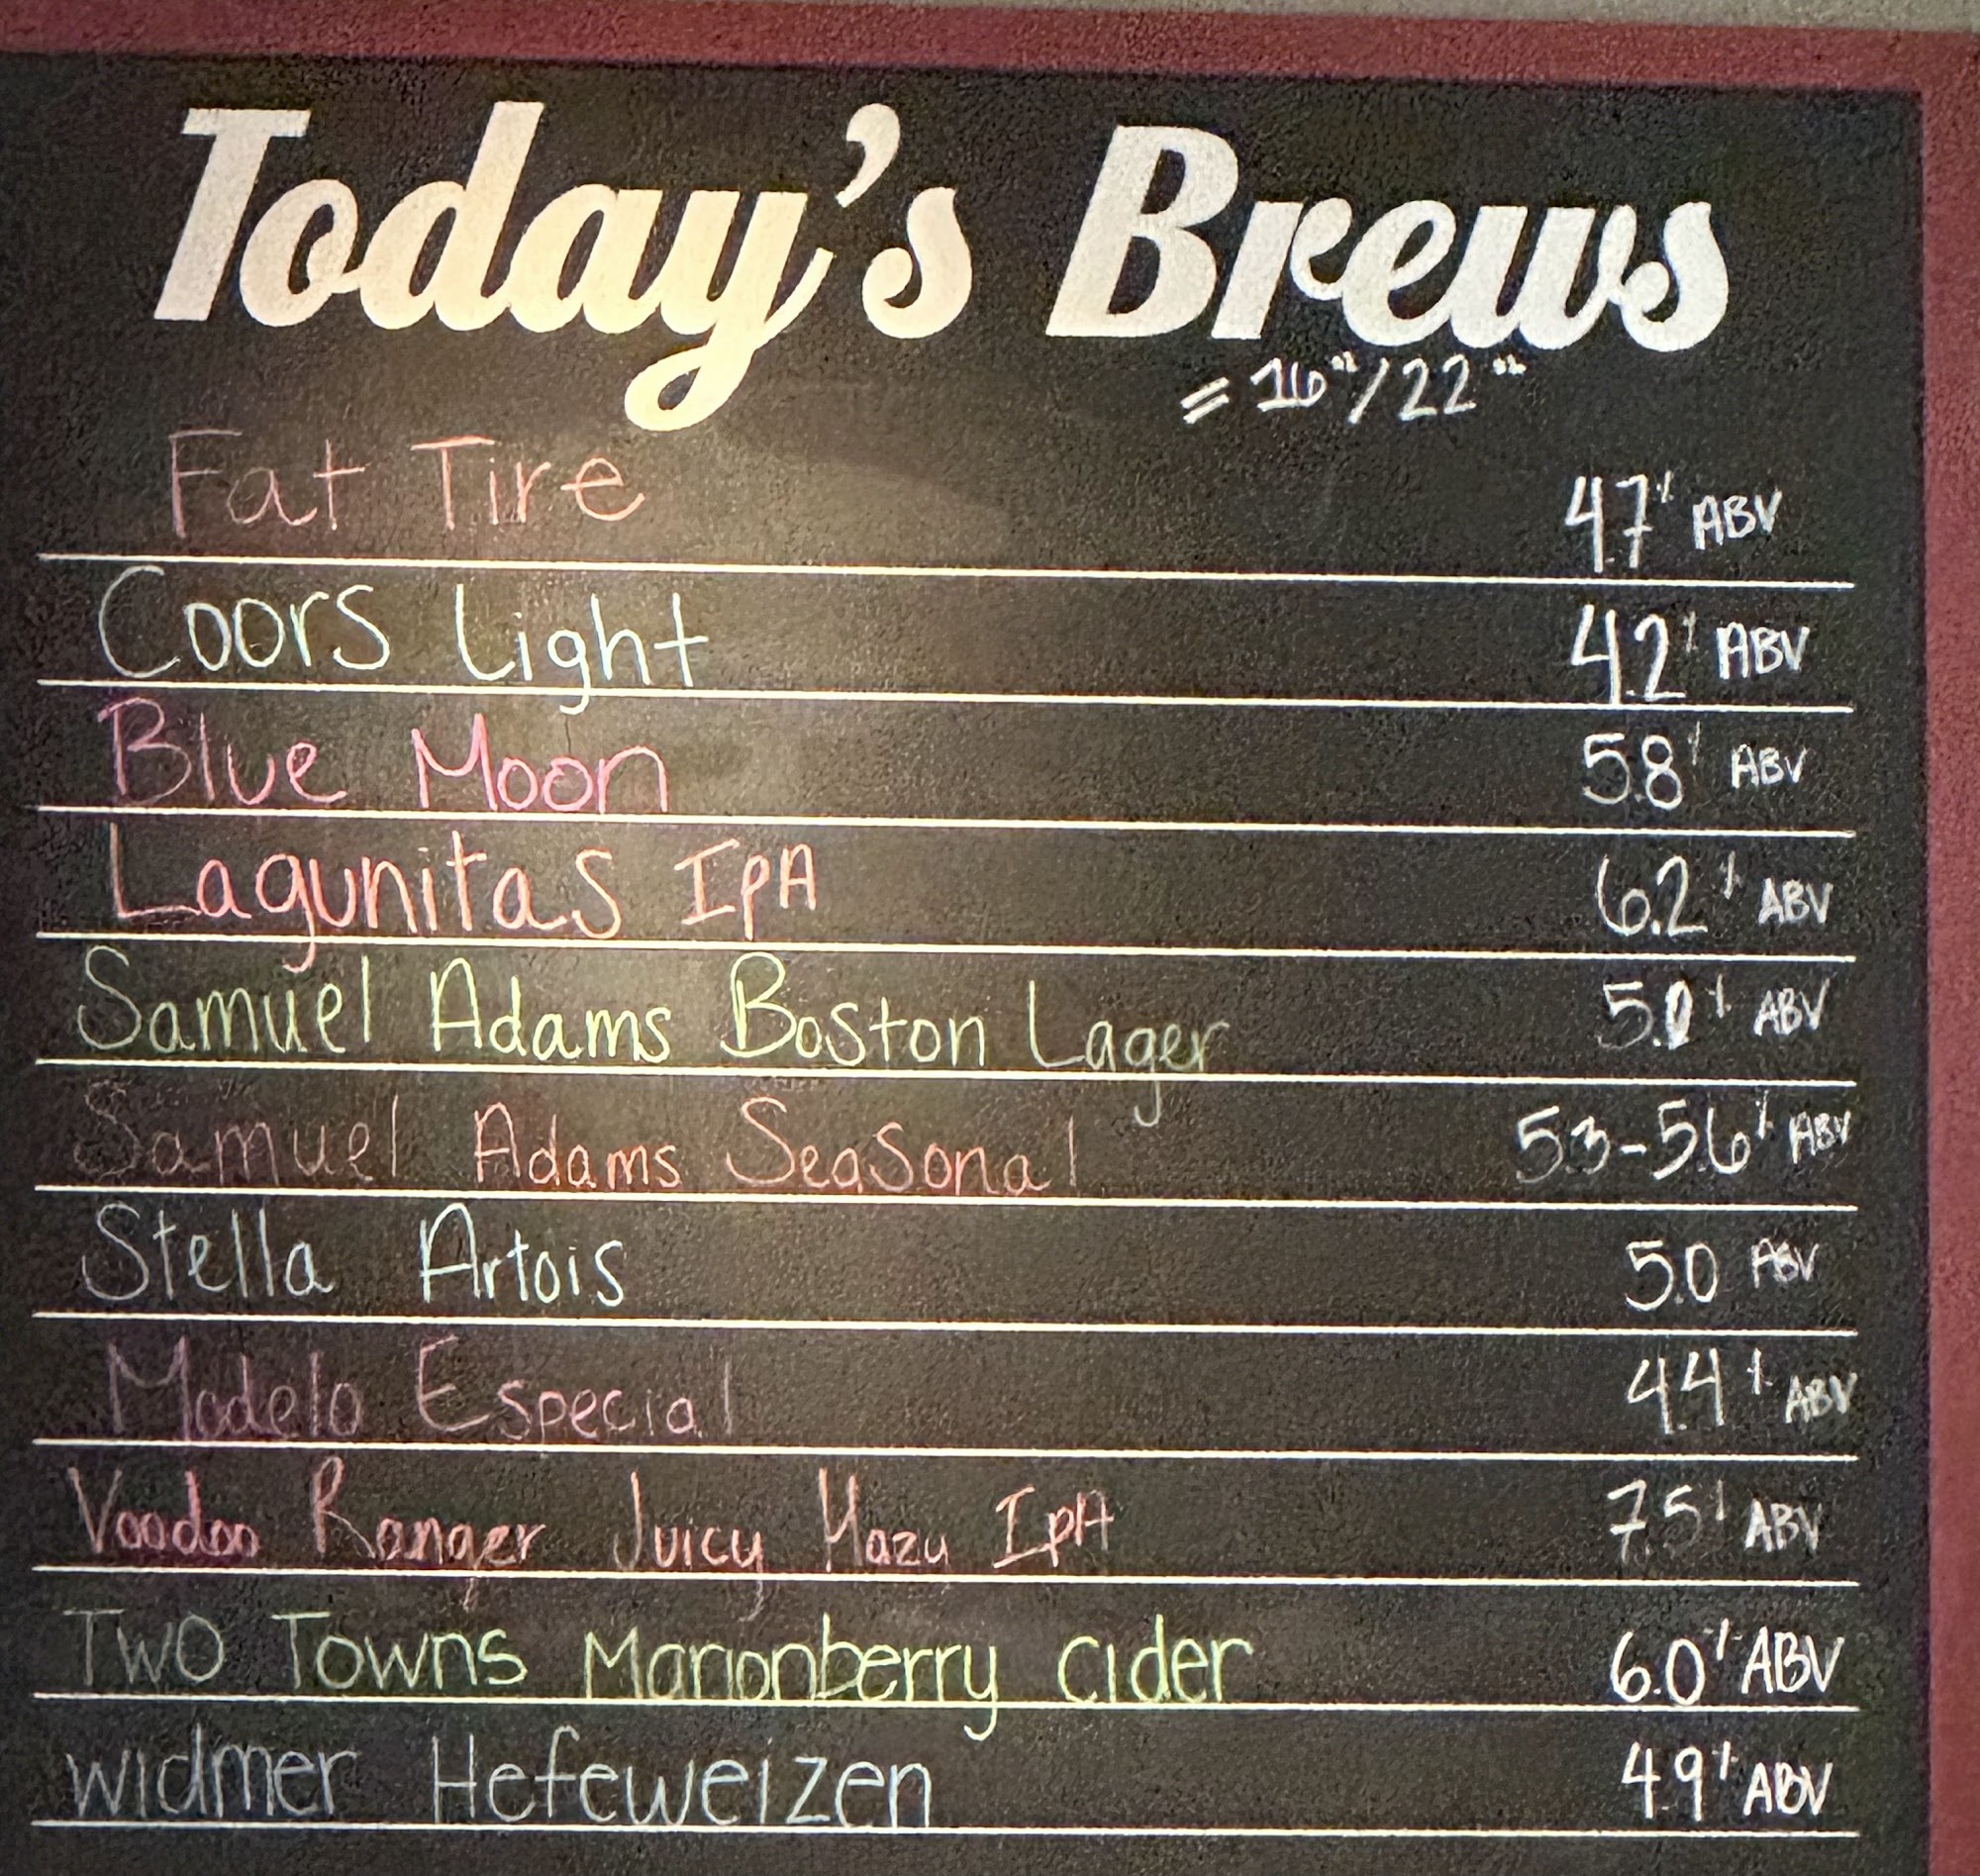 Today's Brews
= 16oz/22oz
Fat Tire 4.7% ABV
Coors Light 4.2% ABV
Blue Moon 5.8% ABV
Lagunitas IPA 6.2% ABV
Samuel Adams Boston Lager 5.0% ABV
Samuel Adams Seasonal 5.3-5.6% ABV
Stella Artois 5.0 ABV
Modelo Especial 4.4% ABV
Voodoo Ranger Juicy Hazy IPA 7.5% ABV
Two Towns Marionberry cider 6.0% ABV
widmer Hefeweizen 4.9% ABV